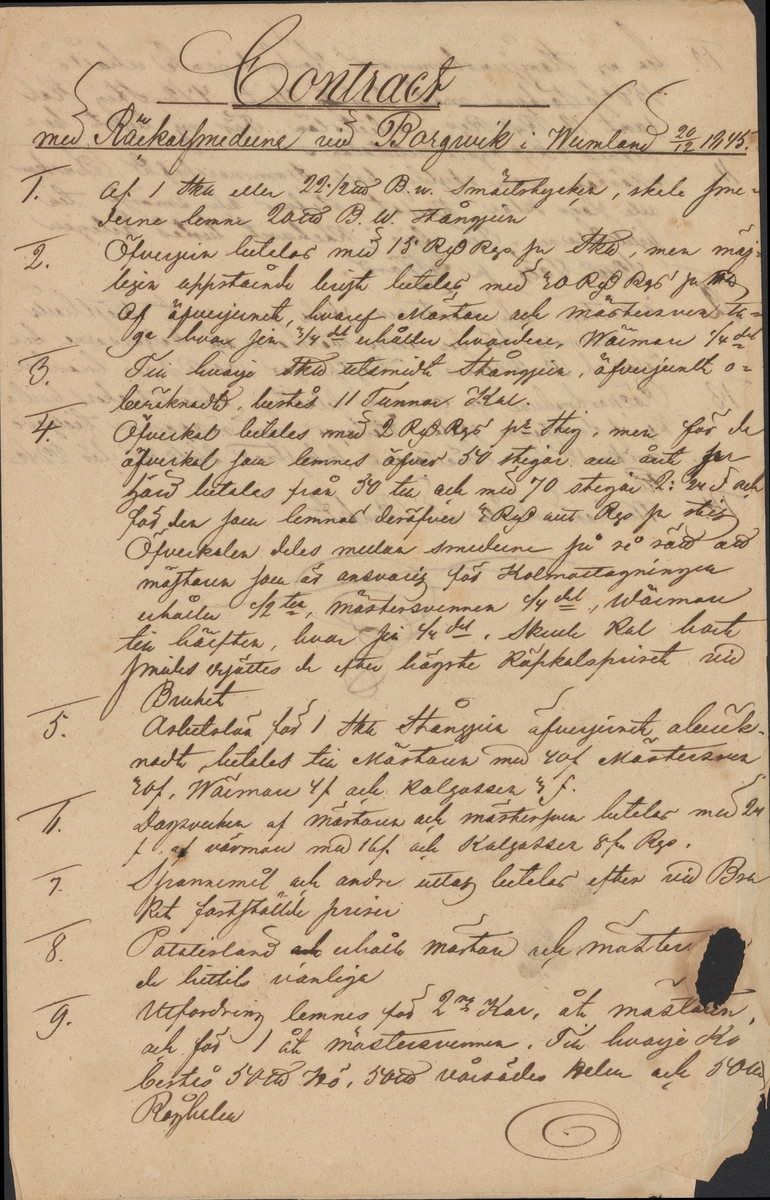 Contract
med Räckarsmederne vid Borgwik i Wermland 20/12 1845.
1. Af 1 Skd eller 22 1/2 ℔ B. w. Smältstycken, skola sme-
derne lemna 20 ℔ B. W. Stångjern
2. Öfverjern betalas med 15 Rgd Rgs pr Skd, men möj-
ligen uppstående brist betalas med 20 Rgd Rgs pr
Af öfverjernet, hvaraf Mästare och mästersven ta-
ga hvar sin 3/4 del erhåller hvardera, Wärmare 1/4 del
3. Till hvarje Skd utsmidt Stångjern, öfverjernet o-
beräknadt, bestås 11 Tunnor Kol.
4. Öfverkol betalas med 2 Rgd Rgs pr Stig, men för de
öfverkol som lemnas öfver 50 stigar om året pr
härd betalas från 50 till och med 70 stigar 2: och
för den som lemnas deröfver 3 Rgd Rgs pr stig
Öfverkolen delas mellan smederne på så sätt att
mästaren som är ansvarig för Kolmottagningen
erhåller 1/2 ten, mästersvennen 1/4 del, Wärmare
till hälften, hvar sin 1/4 del. Skulle Kol bort
smidas ersättes de efter högsta Köpkolspriset vid
Bruket
5. Arbetslön för 1 Skd Stångjern öfverjernet oberäk-
nadt, betales till Mästaren med 40 f Mästersven
20 f, Wärmare 4 f och Kolgossen 3 f.
6. Dagsverken af mästaren och mästersven betalas med 24
f, af värmare med 16 f och Kolgossen 8 f Rgs.
7. Spannemål och andre uttag betalas efter vid Bru
ket fastställde priser
8. Potatisland erhålla mästare och mäster
de hittils vanliga
9. Utfordring lemnas för 2ne Kor, åt mästaren,
och för 1 åt mästersvennen. Till hvarje Ko
bestås 50 ℔ Hö, 50 ℔ vårsädes Halm och 50 ℔
Råghalm